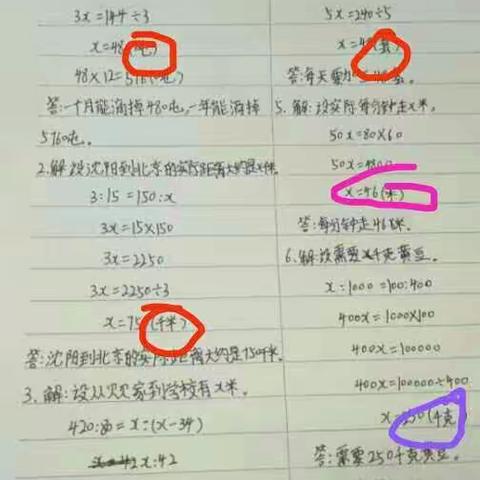 3x=144÷3
x=48(吨)
48×12=576(吨)
答:一个月能消掉480吨,一年能消掉
5760吨。
2.解:设沈阳到北京的实际距离大约是x千米。
3:15=150:x
3x=15×150
3x=2250
3x=2250÷3
x=750(千米)
答:沈阳到北京的实际距离大约是750千米。
3.解:设从贝贝家到学校有x米。
=x:(x-34)
x:42
5x=240÷5
x=48
答:每天要
5.解:设实际每分钟走x米。
50x=80×60
50x=4800
x=96(米)
答:每分钟走
6.解:设需要x千克黄豆。
x:1000=100:400
400x=1000×100
400x=100000
400x=100000÷400
x=250(千克)
答:需要250千克黄豆。